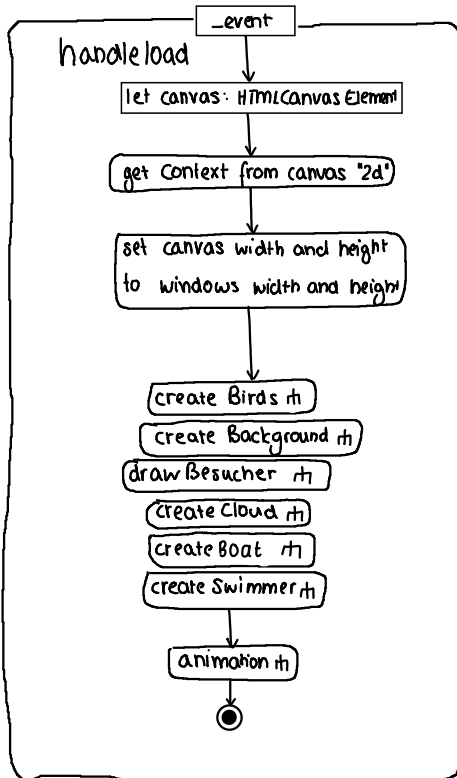 _event
handleload
let canvas: HTMLCanvasElement
get Context from canvas "2d"
set canvas width and height
to windows width and height
create Birds
create Background
draw Besucher
create Cloud
create Boat
create Swimmer
animation